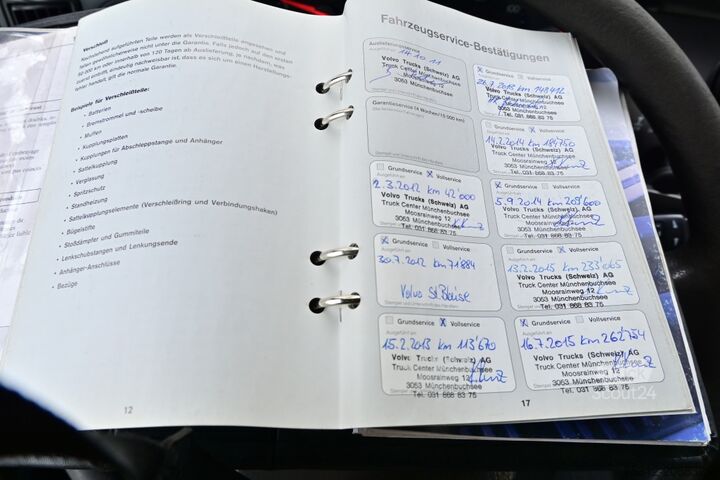 Verschleiß
Nachstehend aufgeführten Teile werden als Verschleißteile angesehen und
fallen gewöhnlicherweise nicht unter die Garantie. Falls jedoch auf den ersten
50 000 km oder innerhalb von 120 Tagen ab Auslieferung, je nachdem, was
zuerst eintrifft, eindeutig nachweisbar ist, dass es sich um einen Herstellungs-
fehler handelt, gilt die normale Garantie.
Beispiele für Verschleißteile:
• Batterien
• Bremstrommel und -scheibe
• Muffen
• Kupplungsplatten
• Kupplungen für Abschleppstange und Anhänger
• Sattelkupplung
• Verglasung
• Spritzschutz
• Standheizung
• Sattelkupplungselemente (Verschleißring und Verbindungshaken)
• Bügelstifte
• Stoßdämpfer und Gummiteile
• Lenkschubstangen und Lenkungsende
• Anhänger-Anschlüsse
• Bezüge
12
Fahrzeugservice-Bestätigungen
Auslieferungsservice
14.10.11
Volvo Trucks (Schweiz) AG
Truck Center Münchenbuchsee
Moosrainweg 12
3053 Münchenbuchsee
Garantieservice (4 Wochen/15 000 km)
Grundservice X Vollservice
2.3.2012 km 42'000
Volvo Trucks (Schweiz) AG
Truck Center Münchenbuchsee
Moosrainweg 12
3053 Münchenbuchsee
Tel. 031 868 83 75
X Grundservice Vollservice
30.7.2012 km 71'884
Volvo St. Blaise
Grundservice X Vollservice
15.2.2013 km 113'670
Volvo Trucks (Schweiz) AG
Truck Center Münchenbuchsee
Moosrainweg 12
3053 Münchenbuchsee
Tel. 031 868 83 75
X Grundservice Vollservice
Volvo Trucks (Schweiz) AG
Truck Center Münchenbuchsee
3053 Münchenbuchsee
Tel. 031 868 83 75
Grundservice X Vollservice
14.2.2014 km 184750
Volvo Trucks (Schweiz) AG
Truck Center Münchenbuchsee
Moosrainweg 12
3053 Münchenbuchsee
Tel. 031 868 83 75
X Grundservice Vollservice
5.9.2014 km 209'600
Volvo Trucks (Schweiz) AG
Truck Center Münchenbuchsee
Moosrainweg 12
3053 Münchenbuchsee
Tel. 031 868 83 75
Grundservice X Vollservice
13.2.2015 km 233'065
Volvo Trucks (Schweiz) AG
Truck Center Münchenbuchsee
Moosrainweg 12
3053 Münchenbuchsee
Tel. 031 868 83 75
X Grundservice Vollservice
16.7.2015 km 262'754
Volvo Trucks (Schweiz) AG
Truck Center Münchenbuchsee
Moosrainweg 12
3053 Münchenbuchsee
Tel. 031 868 83 75
17
Scout24